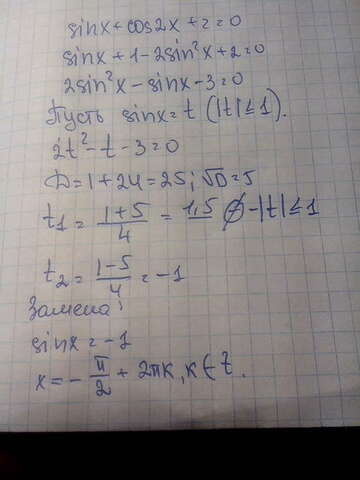 sinx+cos2x+2=0
sinx+1-2sin²x+2=0
2sin²x-sinx-3=0
Пусть sinx=t (|t|≤1).
2t²-t-3=0
D=1+24=25; √D=5
t₁=(1+5)/4=1,5 ∅-|t|≤1
t₂=(1-5)/4=-1
Замена:
sinx=-1
x=-π/2+2πk, k∈Z.